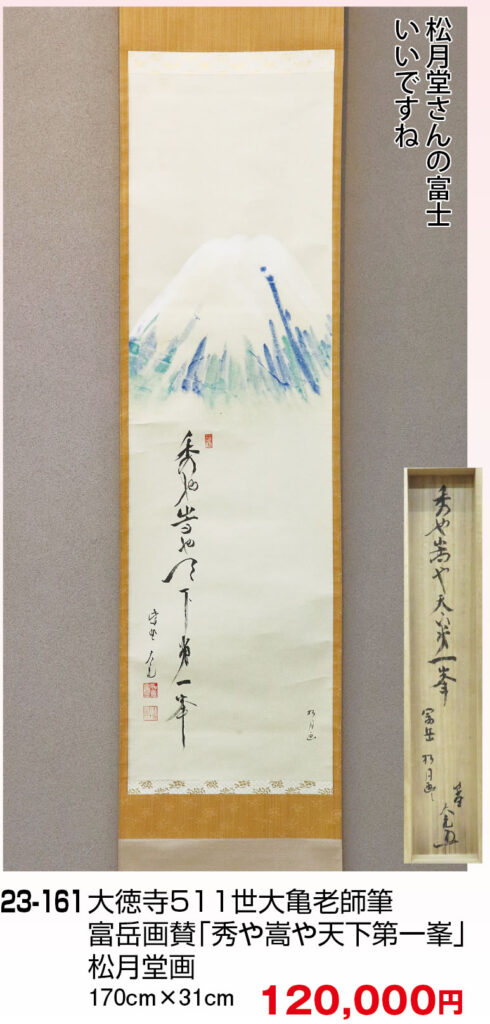 松月堂さんの富士
いいですね
秀や嵩や天下第一峯
秀や嵩や天下第一峯
富岳 松月画
松月画
23-161 大徳寺511世大亀老師筆
富岳画賛「秀や嵩や天下第一峯」
松月堂画
170cm×31cm 120,000円